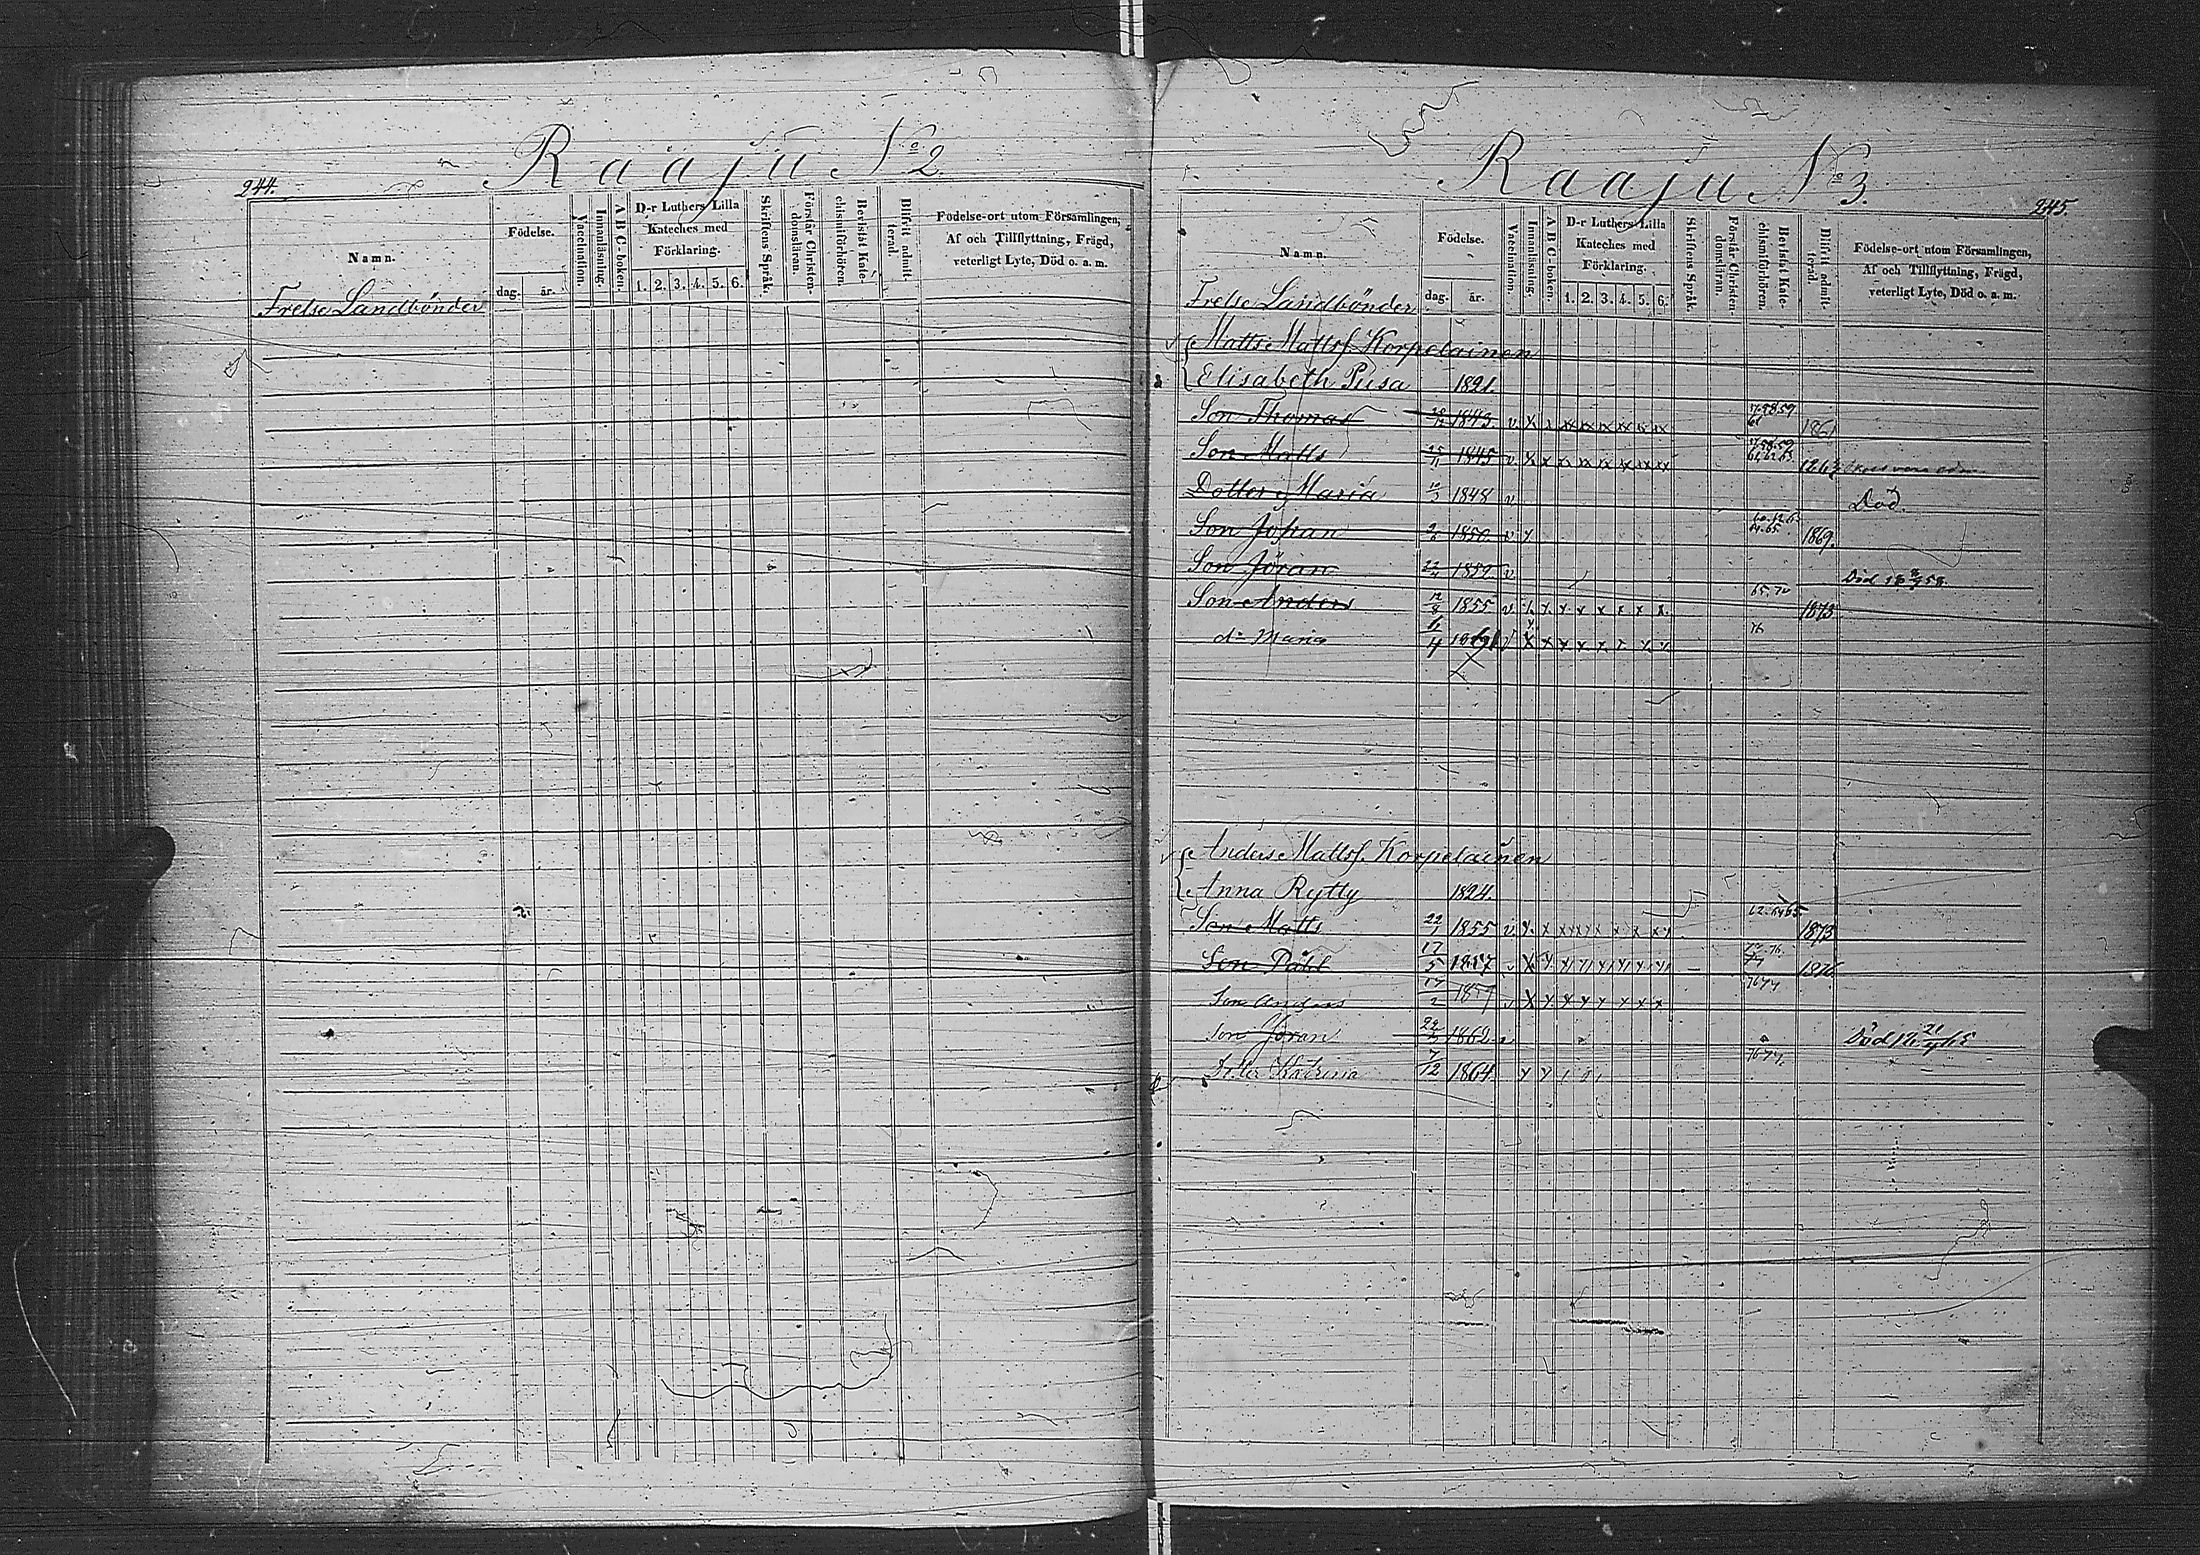 244.
Raaju No 2.
Namn.
Födelse.
dag. år.
Vaccination.
Innanläsning.
A B C-boken.
D-r Luthers Lilla
Kateches med
Förklaring.
1. 2. 3. 4. 5. 6.
Skriftens Språk.
Förstår Christen-
domsläran.
Bevistat Kate-
chismiförhören.
Dilsvit admit-
terad.
Födelse-ort utom Församlingen,
Af och Tillflyttning, Frägd,
veterligt Lyte, Död o. a. m.
Frelse Landbönder
Raaju No 3.
245.
Namn.
Födelse.
dag. år.
Vaccination.
Innanläsning.
A B C-boken.
D-r Luthers Lilla
Kateches med
Förklaring.
1. 2. 3. 4. 5. 6.
Skriftens Språk.
Förstår Christen-
domsläran.
Bevistat Kate-
chismiförhören.
Dilsvit admit-
terad.
Födelse-ort utom Församlingen,
Af och Tillflyttning, Frägd,
veterligt Lyte, Död o. a. m.
Frelse Landbönder
Matts Mattss. Korpelainen
Elisabeth Pusa 1821.
Son Thomas 1843 v x x x x x x x 1861
Son Matts 1845 v x x x x x x x x
Dotter Maria 1848 v Död.
Son Johan 1850 v 1869.
Son Jöran 1852 v Död
Son Anders 12/8 1855 v x x x x x x x 65. 70 1873
dr Maria 6/4 x x x x x x x 76
Anders Mattss. Korpelainen
Anna Rytty 1824.
Son Matts 22/1 1855 v x x x x x x x 1873
Son Påhl 17/5 1857 x x x x x x x x 1876
Son Anders 17/2 x x x x x x x x 76 77
Son Jöran 1862 Död
Doter Katrina 7/12 1864. 76 77.